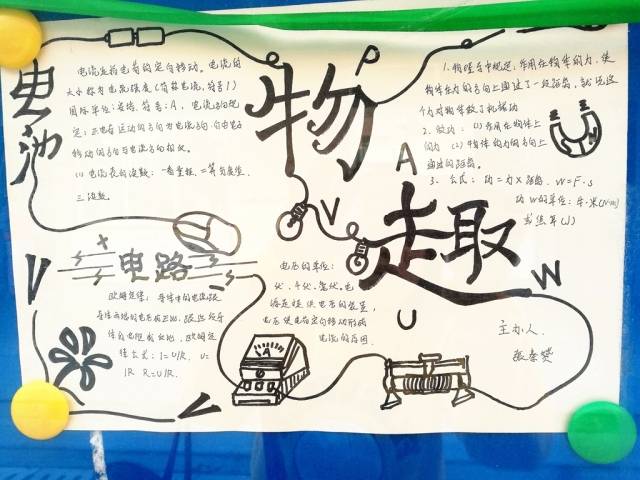 电池
电流是指电荷的定向移动。电流的
大小称为电流强度(简称电流,符号I)
国际单位:安培,符号:A,电流方向规
定:正电荷运动的方向为电流方向,自由电子
移动的方向与电流方向相反。
(1)电流表的读数:一看量程,二算分度值,
三读数
物
趣
P
A
V
U
W
1. 物理学中规定,作用在物体的力,使
物体在力的方向上通过了一段距离,就说这
个力对物体做了机械功
2. 做功:(1)作用在物体上
的力 (2)物体的力的方向上
通过的距离。
3. 公式:功=力×距离,W=F·S
功W的单位:牛·米(N·m)
或焦耳(J)
电路
V
欧姆定律:导体中的电流跟
导体两端的电压成正比,跟这段导
体的电阻成反比,欧姆定
律公式:I=U/R. U=
IR R=U/R.
电压的单位:
伏、千伏、毫伏。电
源是提供电压的装置,
电压使电荷定向移动形成
电流的原因。
A
主办人.